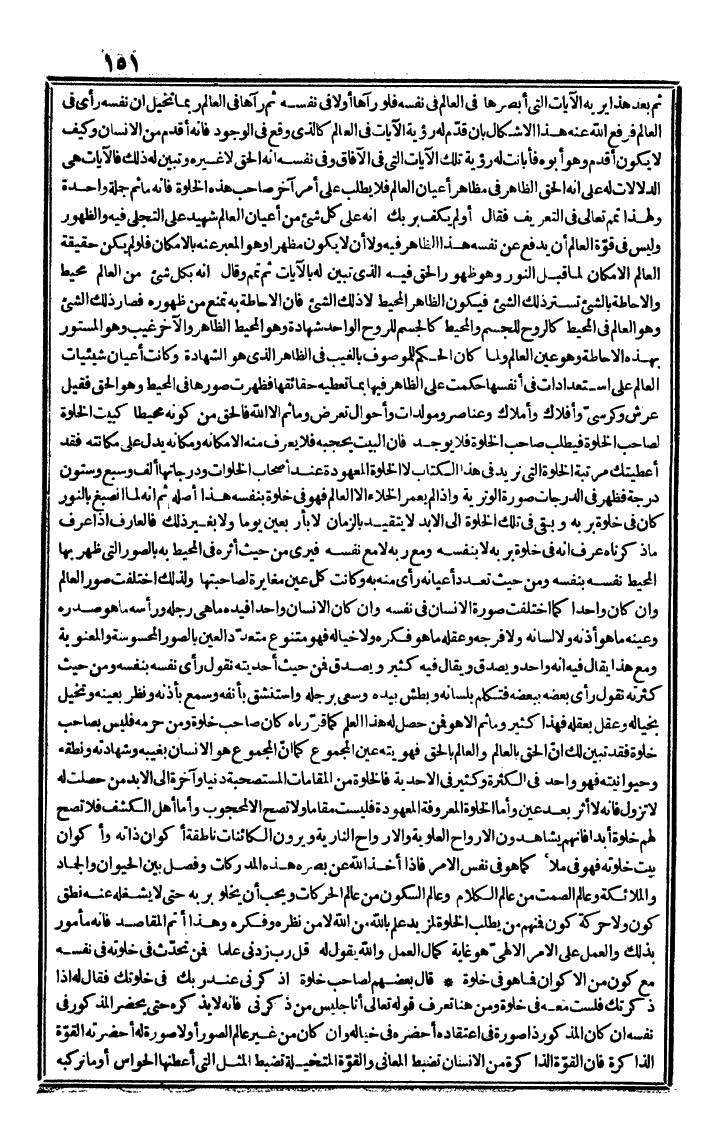 ١٥١
ثم بعد هذا يريه الآيات التي أبصرها في العالم في نفسه فلو رآها أولا في نفسه ثم رآها في العالم ربما تخيل ان نفسه رأى في
العالم فرفع الله عنه هذا الاشكال بان قدّم له رؤية الآيات في العالم كالذى وقع في الوجود فانه أقدم من الانسان وكيف
لا يكون أقدم وهو أبوه فأبانت له رؤية تلك الآيات التي في الآفاق وفي نفسه انه الحق لا غيره وتبين له ذلك فالآيات هي
الدلالات له على انه الحق الظاهر في مظاهر أعيان العالم فلا يطلب على أمر آخر صاحب هذه الخلوة فانه ما ثم جلة واحدة
ولهذا تمم تعالى في التعريف فقال أولم يكف بربك انه على كل شئ من أعيان العالم شهيد على التجلى فيه والظهور
وليس في قوّة العالم أن يدفع عن نفسه هذا الظاهر فيه ولا أن لا يكون مظهرا وهو المعبر عنه بالامكان فلو لم يكن حقيقة
العالم الامكان لما قبل النور وهو ظهور الحق فيه الذى تبين له بالآيات ثم تمم وقال انه بكل شئ من العالم محيط
والاحاطة بالشئ تستر ذلك الشئ فيكون الظاهر المحيط لا ذلك الشئ فان الاحاطة به تمنع من ظهوره فصار ذلك الشئ
وهو العالم في المحيط كالروح للجسم والمحيط كالجسم للروح الواحد شهادة وهو المحيط الظاهر والآخر غيب وهو المستور
بهذه الاحاطة وهو عين العالم ولما كان الحكم للموصوف بالغيب في الظاهر الذى هو الشهادة وكانت أعيان شيئيات
العالم على استعدادات في أنفسها حكمت على الظاهر فيها بما تعطيه حقائقها فظهرت صورها في المحيط وهو الحق فقيل
عرش وكرسىّ وأفلاك وأملاك وعناصر ومولدات وأحوال تعرض وما ثم الا الله فالحق من كونه محيطا كبيت الخلوة
لصاحب الخلوة فيطلب صاحب الخلوة فلا يوجد فان البيت يحجبه فلا يعرف منه الا مكانه ومكانه يدل على مكانته فقد
أعطيتك مرتبة الخلوة التي نريد في هذا الكتاب لا الخلوة المعهودة عند أصحاب الخلوات ودرجاتها ألف وسبع وستون
درجة فظهر في الدرجات صورة الوترية واذ لم يعمر الخلاء الا العالم فهو في خلوة بنفسه هذا أصله ثم انه لما انصبغ بالنور
كان في خلوة بربه وبقى في تلك الخلوة الى الابد لا يتقيد بالزمان لا بأربعين يوما ولا بغير ذلك فالعارف اذا عرف
ما ذكرناه عرف انه في خلوة بربه لا بنفسه ومع ربه لا مع نفسه فيرى من حيث أثره في المحيط به بالصور التي ظهر بها
المحيط نفسه بنفسه ومن حيث تعدد أعيانه رأى منه به وكانت كل عين مغايرة لصاحبتها ولذلك اختلفت صور العالم
وان كان واحدا كما اختلفت صورة الانسان في نفسه وان كان الانسان واحدا فيده ما هي رجله ورأسه ما هو صدره
وعينه ما هو أذنه ولا لسانه ولا فرجه وعقله ما هو فكره ولا خياله فهو متنوع متعدّد العين بالصور المحسوسة والمعنوية
ومع هذا يقال فيه انه واحد ويصدق ويقال فيه كثير ويصدق فمن حيث أحديته نقول رأى نفسه بنفسه ومن حيث
كثرته نقول رأى بعضه ببعضه فتكلم بلسانه وبطش بيده وسعى برجله واستنشق بأنفه وسمع بأذنه ونظر بعينه وتخيل
بخياله وعقل بعقله فهذا كثير وما ثم الا هو فمن حصل له هذا العلم كما قرّرناه كان صاحب خلوة ومن حرمه فليس بصاحب
خلوة فقد تبين لك انّ الحق بالعالم والعالم بالحق فهويته عين المجموع كما انّ المجموع هو الانسان بغيبه وشهادته ونطقه
وحيوانيته فهو واحد في الكثرة وكثير في الاحدية فالخلوة من المقامات المستصحبة دنيا وآخرة الى الابد من حصلت له
لا تزول فانه لا أثر بعد عين وأما الخلوة المعروفة المعهودة فليست مقاما ولا تصح الا لمحجوب وأما أهل الكشف فلا تصح
لهم خلوة أبدا فانهم يشاهدون الارواح العلوية والارواح النارية ويرون الكائنات ناطقة أكوان ذاته وأكوان
بيت خلوته فهو في ملأ كما هو في نفس الامر فاذا أخذ الله عن بصره هذه المدركات وفصل بين الحيوان والجاد
والملائكة وعالم الصمت من عالم الكلام وعالم السكون من عالم الحركات ويحب أن يخلو بربه حتى لا يشغله عنه نطق
كون ولا حركة كون فنهم من يطلب الخلوة لمزيد علم بالله من الله لا من نظره وفكره وهذا أتم المقاصد فانه مأمور
بذلك والعمل على الامر الالهىّ هو غاية كمال العمل والله يقول له قل رب زدنى علما فمن تحدّث في خلوته في نفسه
مع كون من الاكوان فما هو في خلوة * قال بعضهم لصاحب خلوة اذكرنى عند ربك في خلوتك فقال له اذا
ذكرتك فلست معه في خلوة ومن هنا تعرف قوله تعالى أنا جليس من ذكرنى فانه لا يذكره حتى يحضر المذكور في
نفسه ان كان المذكور ذا صورة في اعتقاده أحضره في خياله وان كان من غير عالم الصور أو لا صورة له أحضرته القوّة
الذاكرة فان القوّة الذاكرة من الانسان تضبط المعانى والقوّة المتخيلة تضبط المثل التي أعطتها الحواس أو ما تركبه